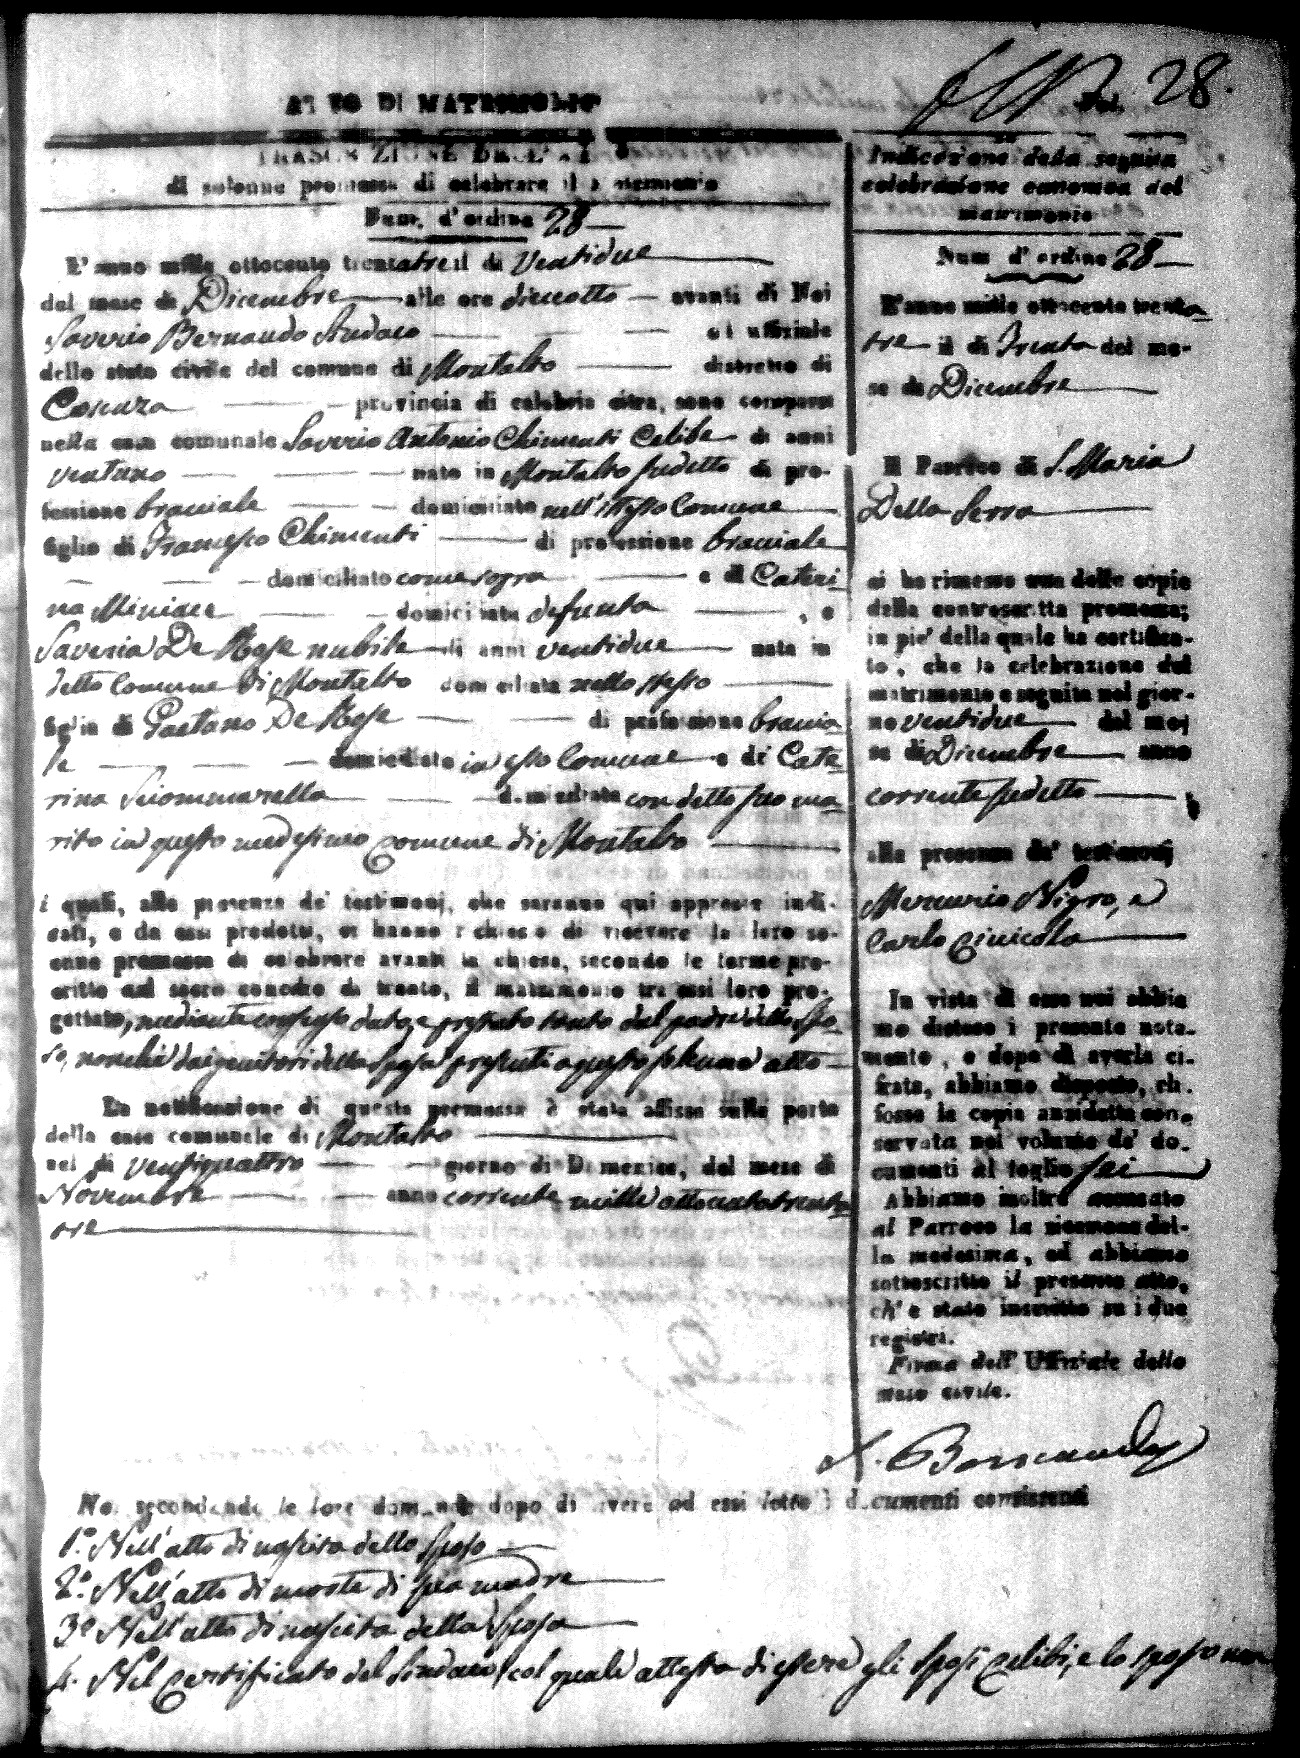 Fol. 28.
ATTO DI MATRIMONIO
TRASCRIZIONE DELL'ATTO
di solenne promessa di celebrare il matrimonio
Num. d'ordine 28
L'anno mille ottocento trentatre il dì Ventidue
del mese di Dicembre alle ore dieciotto avanti di Noi
Saverio Bernaudo Sindaco ed uffiziale
dello stato civile del comune di Montalto distretto di
Cosenza provincia di calabria citra, sono comparsi
nella casa comunale Saverio Antonio Chimenti Celibe di anni
ventuno nato in Montalto sudetto di pro-
fessione bracciale domiciliato nell'istesso Comune
figlio di Francesco Chimenti di professione bracciale
domiciliato come sopra e di Cateri
na domiciliata defunta , e
Saveria De Rose nubile di anni ventidue nata in
detto Comune di Montalto domiciliata nello stesso
figlia di Gaetano De Rose di professione braccia-
le domiciliato in esso Comune e di Cate-
rina Sciommarella domiciliata con detto suo ma-
rito in questo medesimo comune di Montalto
i quali, alla presenza de' testimonj, che saranno qui appresso indi-
cati, e da essi prodotti, ci hanno richiesto di ricevere la loro so-
enne promessa di celebrare avanti la chiesa, secondo le forme pre-
scritte dal sacro concilio di trento, il matrimonio tra essi loro pro-
gettato, mediante consenso dato, e prestato tanto dal padre dello spo-
so, nonchè dai genitori della sposa presenti a questo solenne atto
La notificazione di questa promessa è stata affissa sulla porta
della casa comunale di Montalto
nel dì ventiquattro giorno di Domenica, del mese di
Novembre anno corrente mille ottocento trenta-
tre
Indicazione della seguita
celebrazione canonica del
matrimonio
Num d'ordine 28
L'anno mille ottocento trenta-
tre il dì Trenta del me-
se di Dicembre
Il Parroco di S. Maria
Della Serra
ci ha rimesso una delle copie
della controscritta promessa;
in piè della quale ha certifica-
to, che la celebrazione del
matrimonio è seguita nel gior-
no ventidue del me-
se di Dicembre anno
corrente sudetto
alla presenza de' testimonj
Mercurio Nigro, e
Carlo
In vista di esso noi abbia
mo disteso il presente nota-
mento, e dopo di averla ci-
frata, abbiamo disposto, che
fosse la copia anzidetta con-
servata nel volume de' do-
cumenti al foglio sei
Abbiamo inoltre accusato
al Parroco la ricezione del-
la medesima, ed abbiamo
sottoscritto il presente atto,
ch' è stato inscritto su i due
registri.
Firma dell' Uffiziale dello
stato civile.
S. Bernaudo
Noi secondando le loro domande dopo di avere ad essi letto i documenti consistenti
1.° Nell'atto di nascita dello sposo
2.° Nell'atto di morte di sua madre
3.° Nell'atto di nascita della sposa
4. Nel certificato del Sindaco col quale attesta di essere gli sposi celibi, e lo sposo non